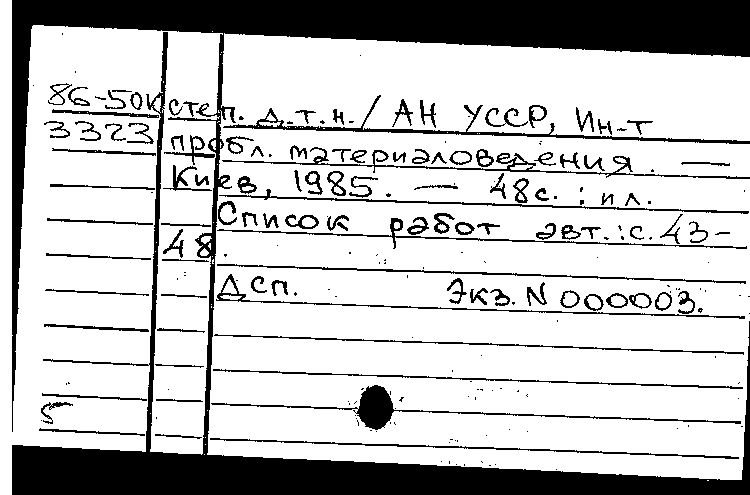 86-50к степ. д.т.н. / АН УССР, Ин-т
3323 пробл. материаловедения. —
Киев, 1985. — 48с. : ил.
Список работ авт.: с. 43-
48.
Дсп. Экз. N 000003.
5